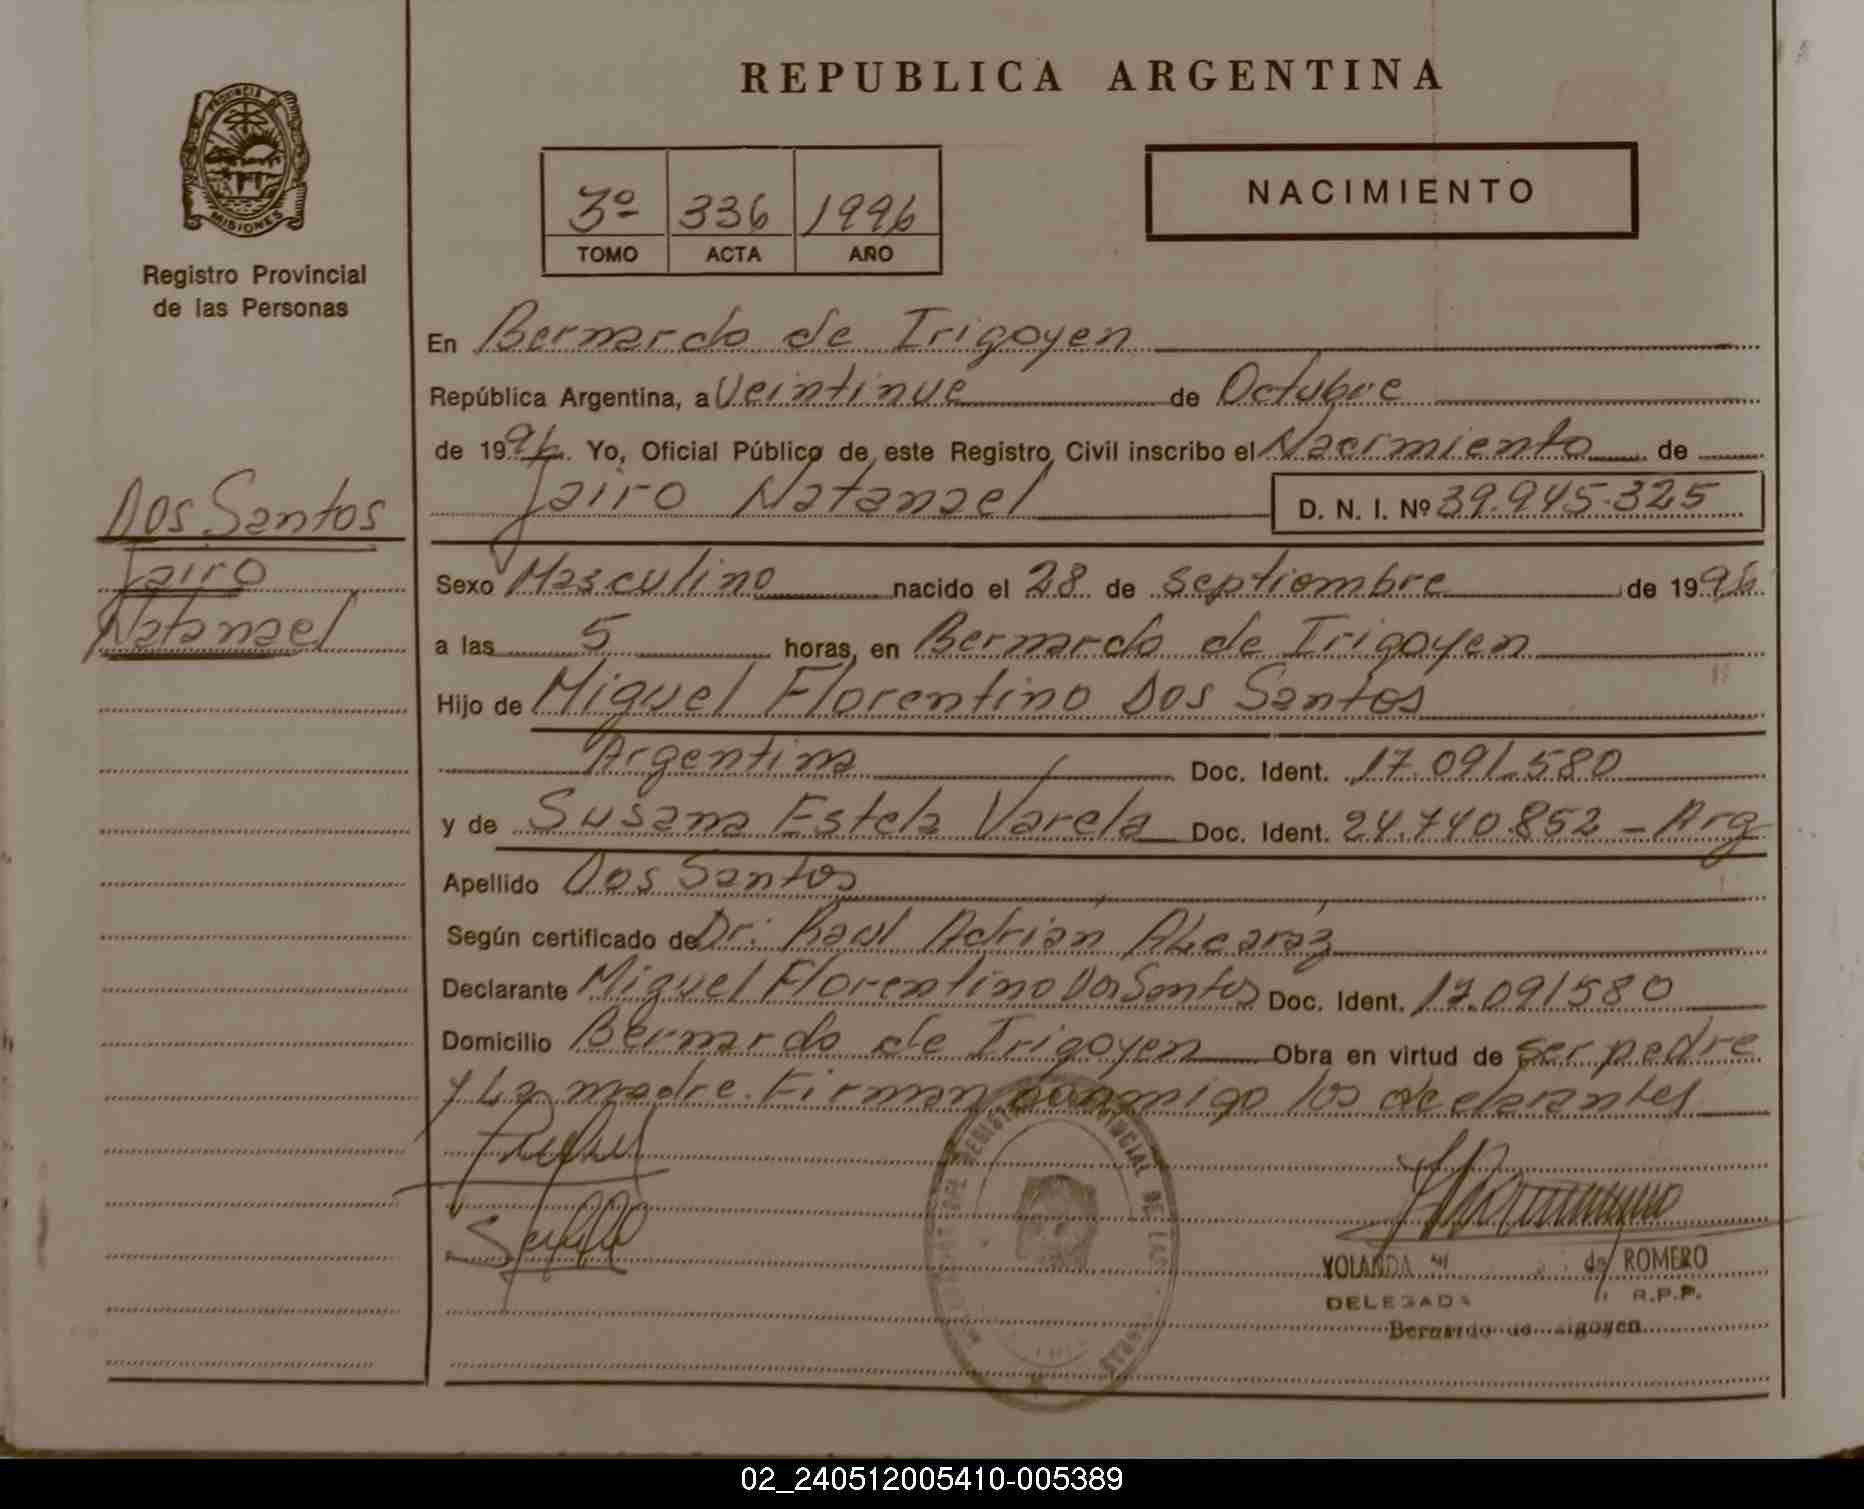 REPUBLICA ARGENTINA
PROVINCIA DE
MISIONES
Registro Provincial
de las Personas
3º 336 1996
TOMO ACTA AÑO
NACIMIENTO
En Bernardo de Irigoyen
República Argentina, a Veintinue de Octubre
de 1996. Yo, Oficial Público de este Registro Civil inscribo el Nacimiento de
Jairo Natanael D. N. I. Nº 39.945.325
Dos Santos
Jairo
Natanael
Sexo Masculino nacido el 28 de Septiembre de 1996
a las 5 horas, en Bernardo de Irigoyen
Hijo de Miguel Florentino Dos Santos
Argentina Doc. Ident. 17.091.580
y de Susana Estela Varela Doc. Ident. 24.740.852 - Arg
Apellido Dos Santos
Según certificado de Dr: Raul Adrian Alcaraz
Declarante Miguel Florentino Dos Santos Doc. Ident. 17.091580
Domicilio Bernardo de Irigoyen Obra en virtud de ser padre
y La madre. Firman conmigo los declarantes
YOLANDA de ROMERO
DELEGADA R.P.P.
Bernardo de Irigoyen
02_240512005410-005389